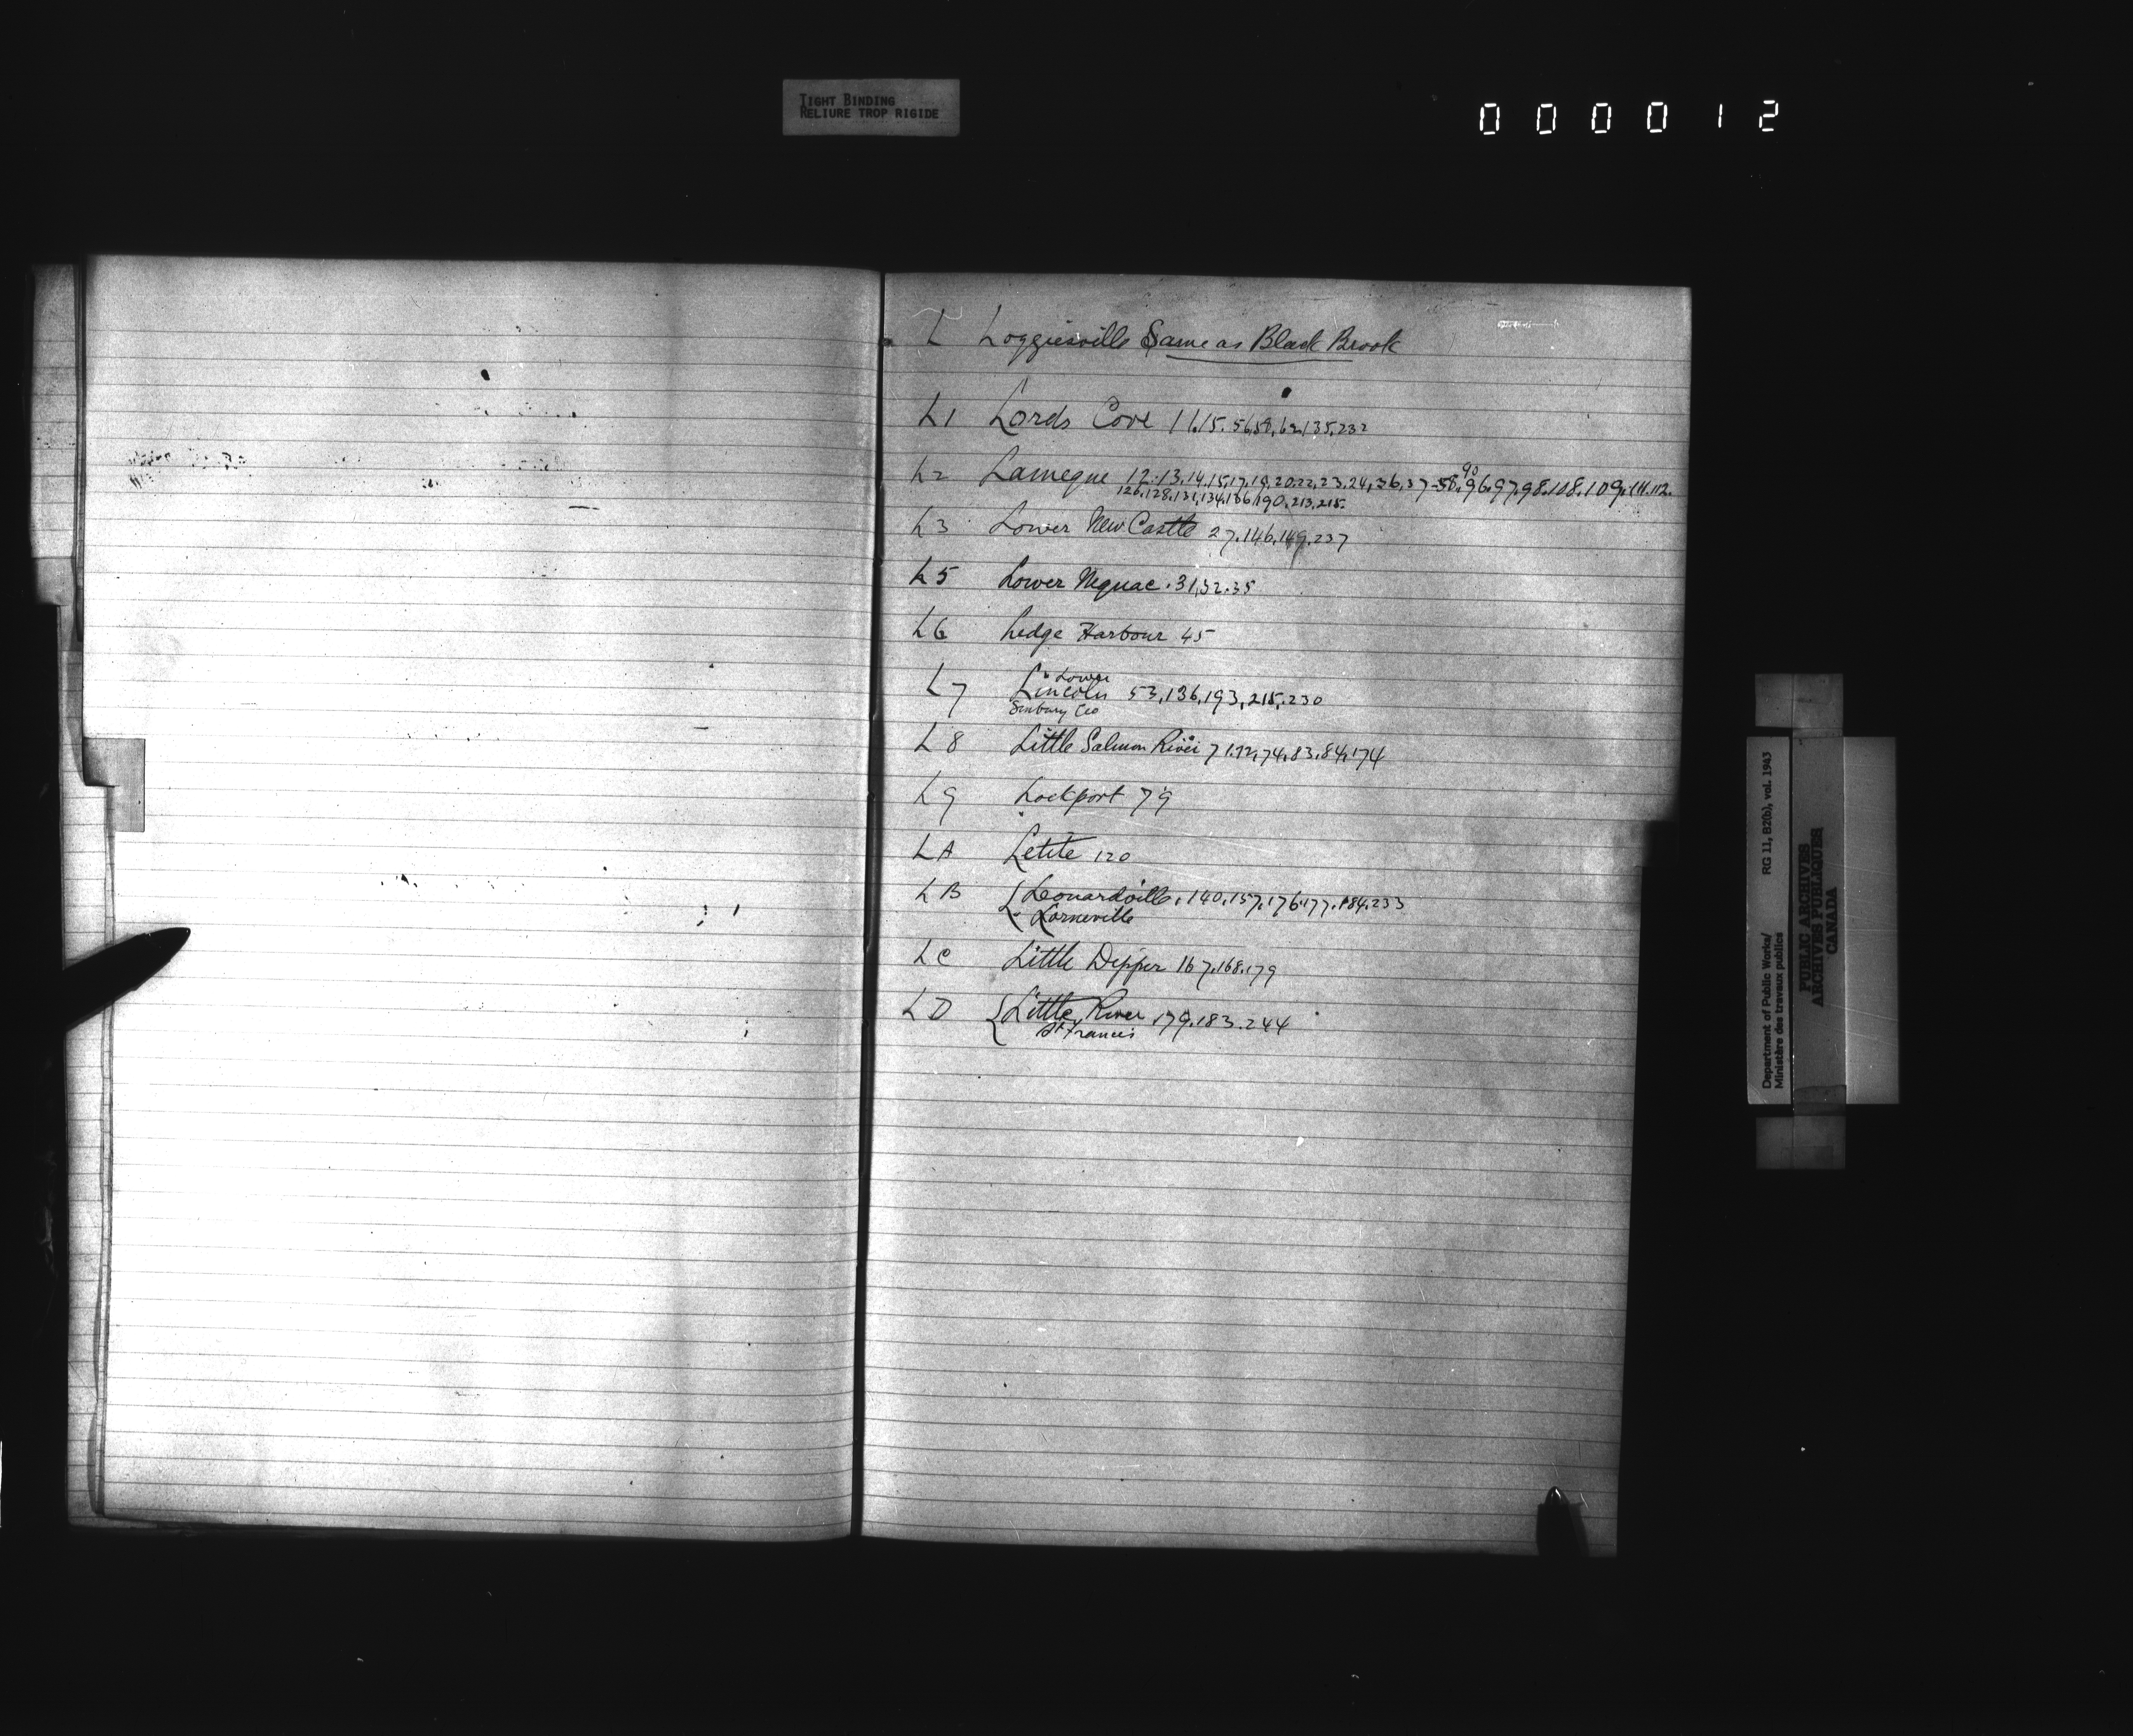 TIGHT BINDING
RELIURE TROP RIGIDE
000012
L Loggiesville Same as Black Brook
L1 Lords Cove 11.15.56,58,62,135,232
L2 Lameque 12.13.14.15.17.19.20.22.23.24,36,37.58.90.96.97.98.108.109.111.112.
126,128,131,134,136,190,213,215.
L3 Lower New Castle 27.146.149.237
L5 Lower Neguac. 31,32.35
L6 Ledge Harbour 45
" Lower
L7 Lincoln 53,136,193,215,230
Sunbury Co
L8 Little Salmon River 71.72,74,83,84,174
L9 Lockport 79
LA Letete 120
LB Leonardville. 140,157,176.177.184.233
" Lorneville
LC Little Dipper 167.168.179
LD Little River 179.183.244
St Francis
Department of Public Works/ RG 11, B2(b), vol. 1943
Ministère des travaux publics
PUBLIC ARCHIVES
ARCHIVES PUBLIQUES
CANADA